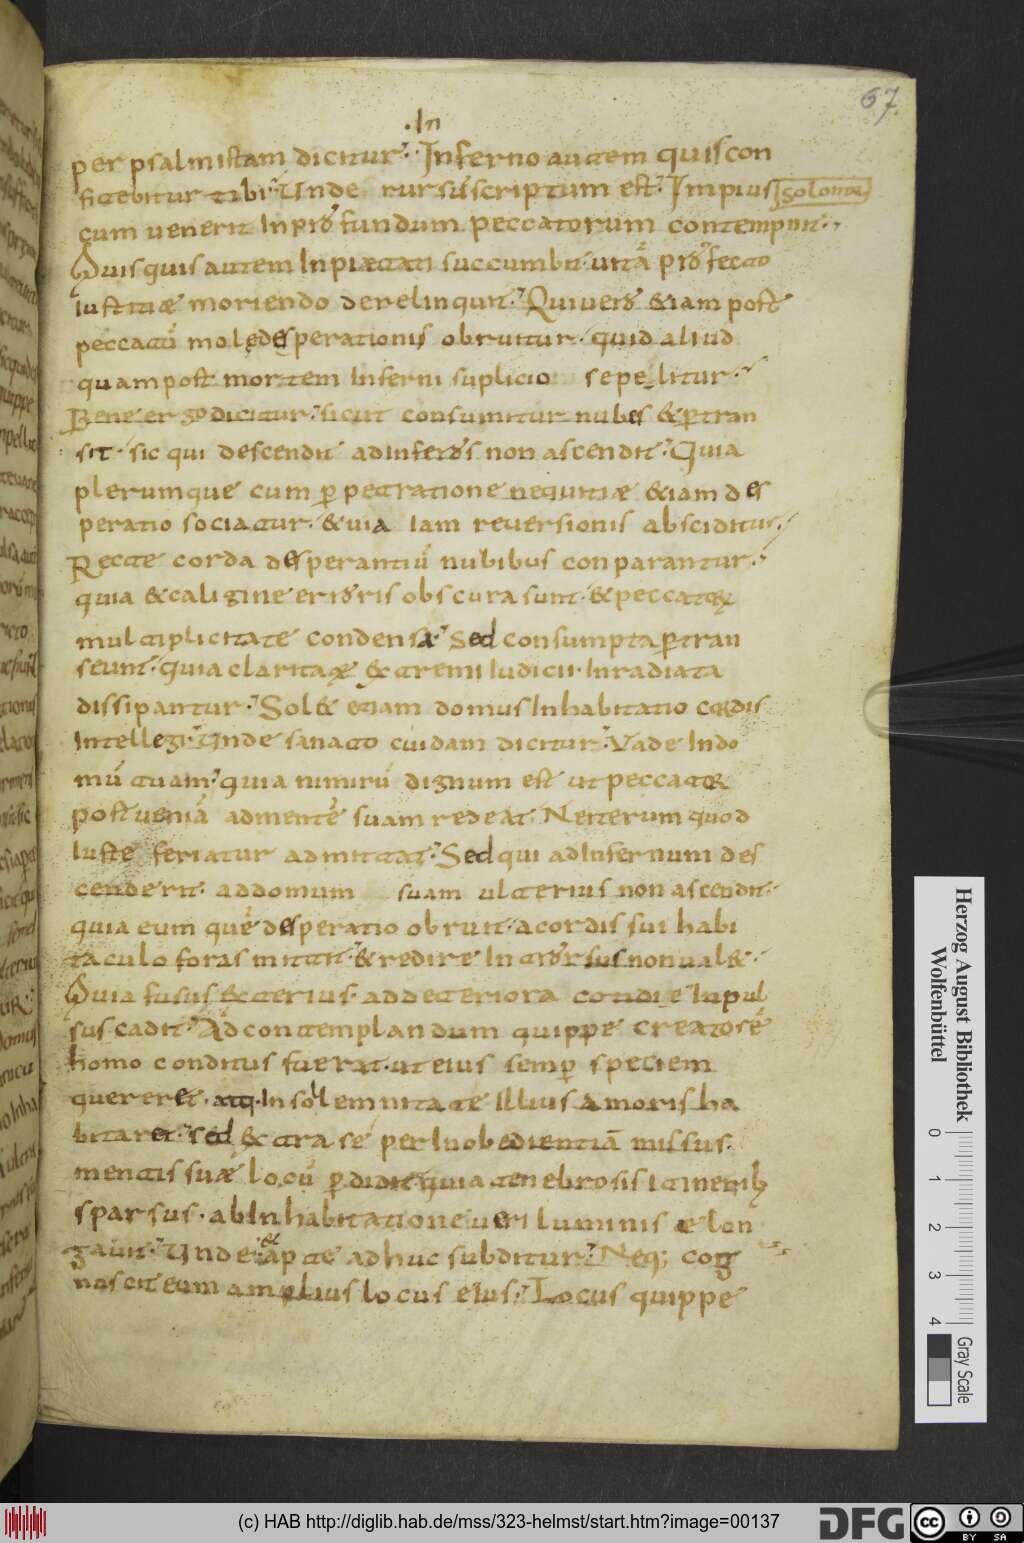 67
·In
per psalmistam dicitur· Inferno autem quis con
fitebitur tibi· Unde rursus scriptum est· Impius solomon
cum venerit in profundum peccatorum contempnit·
Quisquis autem inpiaetati succumbit· vitā profecto
iustitiæ moriendo derelinquit· Qui vero &iam post
peccatū mole desperationis obruitur· quid aliud
quam post mortem inferni suplicio sepelitur·
Bene ergo dicitur· sicut consumitur nubes & ꝑtran
sit· sic qui descendit ad inferos non ascendit· Quia
plerumque cum ꝑpetratione nequitiæ &iam des
peratio sociatur· & via iam reversionis absciditur·
Recte corda desperantiū nubibus conparantur·
quia & caligine erroris obscura sunt· & peccatoꝝ
multiplicitate condensa· Sed consumpta ꝑtran
seunt· quia claritate extremi iudicii· inradiata
dissipantur· Sol& etiam domus inhabitatio cordis
intellegi· Unde sanato cuidam dicitur· Vade in do
mū tuam· quia nimirū dignum est ut peccator
post veniā ad mentē suam redeat· Ne iterum quod
iuste feriatur admittat· Sed qui ad infernum des
cenderit· ad domum suam ulterius non ascendit·
quia eum quē desperatio obruit· a cordis sui habi
taculo foras mittit· & redire introrsus non val&·
Quia fusus exterius· ad deteriora cotidie inpul
sus cadit· Ad contemplandum quippe creatorē
homo conditus fuerat· ut eius semꝑ speciem
quereret· atq· in solemnitate illius amoris ha
bitaret· sed extra se per inobedientiā missus·
mentis suæ locū ꝑdidit· quia tenebrosis itineribꝫ
sparsus· ab inhabitatione veri luminis elon
gavit· Unde & apte adhuc subditur· Neq; cog
noscit eum amplius locus eius· Locus quippe
Herzog August Bibliothek
Wolfenbüttel
0 1 2 3 4
Gray Scale
(c) HAB http://diglib.hab.de/mss/323-helmst/start.htm?image=00137
DFG
cc BY SA